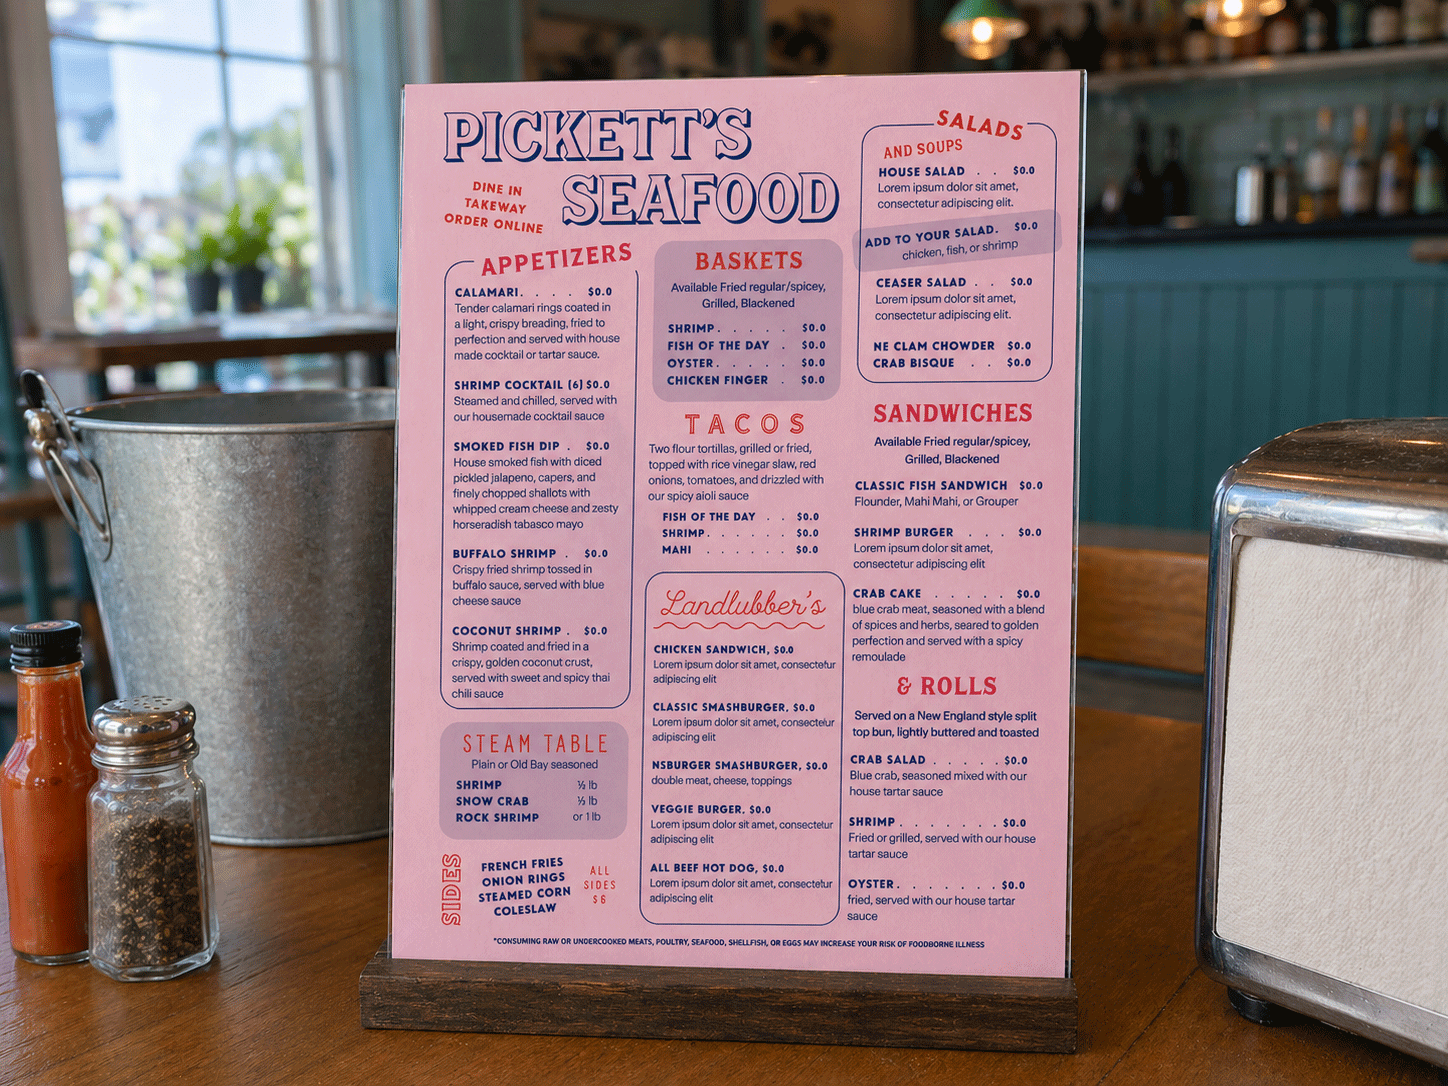 PICKETT'S
SEAFOOD
DINE IN
TAKEWAY
ORDER ONLINE
APPETIZERS
CALAMARI. . . . $0.0
Tender calamari rings coated in
a light, crispy breading, fried to
perfection and served with house
made cocktail or tartar sauce.
SHRIMP COCKTAIL (6) $0.0
Steamed and chilled, served with
our housemade cocktail sauce
SMOKED FISH DIP . $0.0
House smoked fish with diced
pickled jalapeno, capers, and
finely chopped shallots with
whipped cream cheese and zesty
horseradish tabasco mayo
BUFFALO SHRIMP . $0.0
Crispy fried shrimp tossed in
buffalo sauce, served with blue
cheese sauce
COCONUT SHRIMP . $0.0
Shrimp coated and fried in a
crispy, golden coconut crust,
served with sweet and spicy thai
chili sauce
STEAM TABLE
Plain or Old Bay seasoned
SHRIMP ½ lb
SNOW CRAB ½ lb
ROCK SHRIMP or 1 lb
SIDES
FRENCH FRIES
ONION RINGS
STEAMED CORN
COLESLAW
ALL
SIDES
$6
BASKETS
Available Fried regular/spicey,
Grilled, Blackened
SHRIMP. . . . . $0.0
FISH OF THE DAY . $0.0
OYSTER. . . . . $0.0
CHICKEN FINGER . $0.0
TACOS
Two flour tortillas, grilled or fried,
topped with rice vinegar slaw, red
onions, tomatoes, and drizzled with
our spicy aioli sauce
FISH OF THE DAY . . $0.0
SHRIMP. . . . . . $0.0
MAHI . . . . . . $0.0
Landlubber's
CHICKEN SANDWICH, $0.0
Lorem ipsum dolor sit amet, consectetur
adipiscing elit
CLASSIC SMASHBURGER, $0.0
Lorem ipsum dolor sit amet, consectetur
adipiscing elit
NSBURGER SMASHBURGER, $0.0
double meat, cheese, toppings
VEGGIE BURGER, $0.0
Lorem ipsum dolor sit amet, consectetur
adipiscing elit
ALL BEEF HOT DOG, $0.0
Lorem ipsum dolor sit amet, consectetur
adipiscing elit
SALADS
AND SOUPS
HOUSE SALAD . . $0.0
Lorem ipsum dolor sit amet,
consectetur adipiscing elit.
ADD TO YOUR SALAD. $0.0
chicken, fish, or shrimp
CEASER SALAD . . $0.0
Lorem ipsum dolor sit amet,
consectetur adipiscing elit.
NE CLAM CHOWDER $0.0
CRAB BISQUE . . $0.0
SANDWICHES
Available Fried regular/spicey,
Grilled, Blackened
CLASSIC FISH SANDWICH $0.0
Flounder, Mahi Mahi, or Grouper
SHRIMP BURGER . . . $0.0
Lorem ipsum dolor sit amet,
consectetur adipiscing elit
CRAB CAKE . . . . . $0.0
blue crab meat, seasoned with a blend
of spices and herbs, seared to golden
perfection and served with a spicy
remoulade
& ROLLS
Served on a New England style split
top bun, lightly buttered and toasted
CRAB SALAD . . . . . $0.0
Blue crab, seasoned mixed with our
house tartar sauce
SHRIMP. . . . . . . $0.0
Fried or grilled, served with our house
tartar sauce
OYSTER. . . . . . . $0.0
fried, served with our house tartar
sauce
*CONSUMING RAW OR UNDERCOOKED MEATS, POULTRY, SEAFOOD, SHELLFISH, OR EGGS MAY INCREASE YOUR RISK OF FOODBORNE ILLNESS